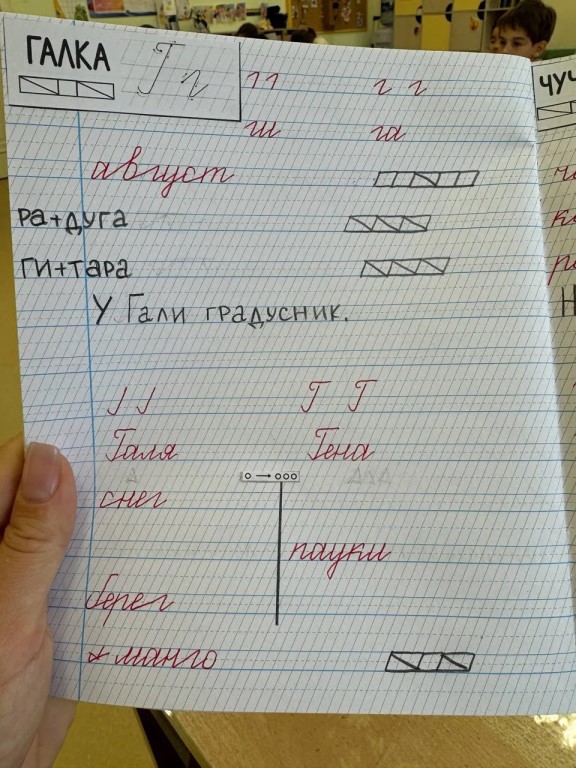 ГАЛКА Г г гг г г
ги га
август
ра+дуга
ги+тара
У Гали градусник.
Г Г
Галя Гена
снег
пауки
берег
манго